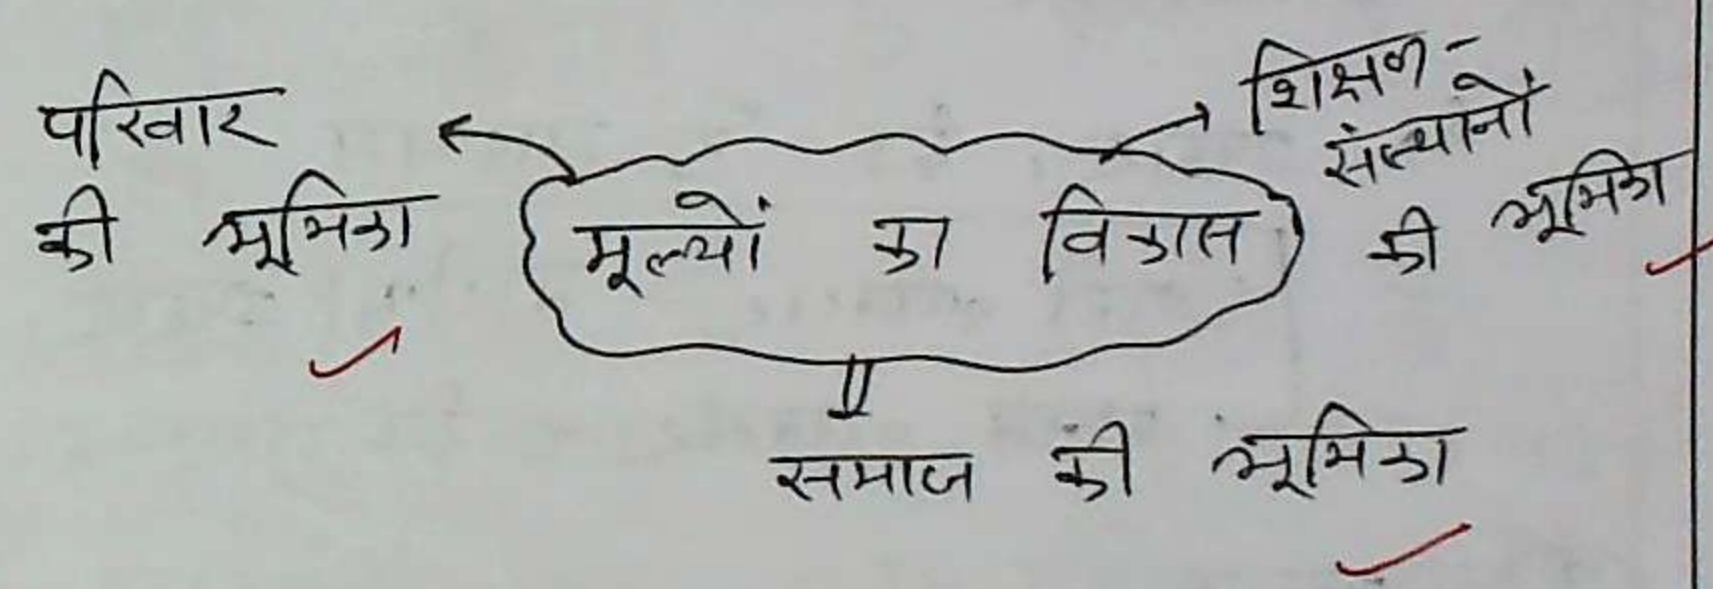 परिवार
की भूमिका
मूल्यों का विकास
शिक्षण-
संस्थानों
की भूमिका
समाज की भूमिका